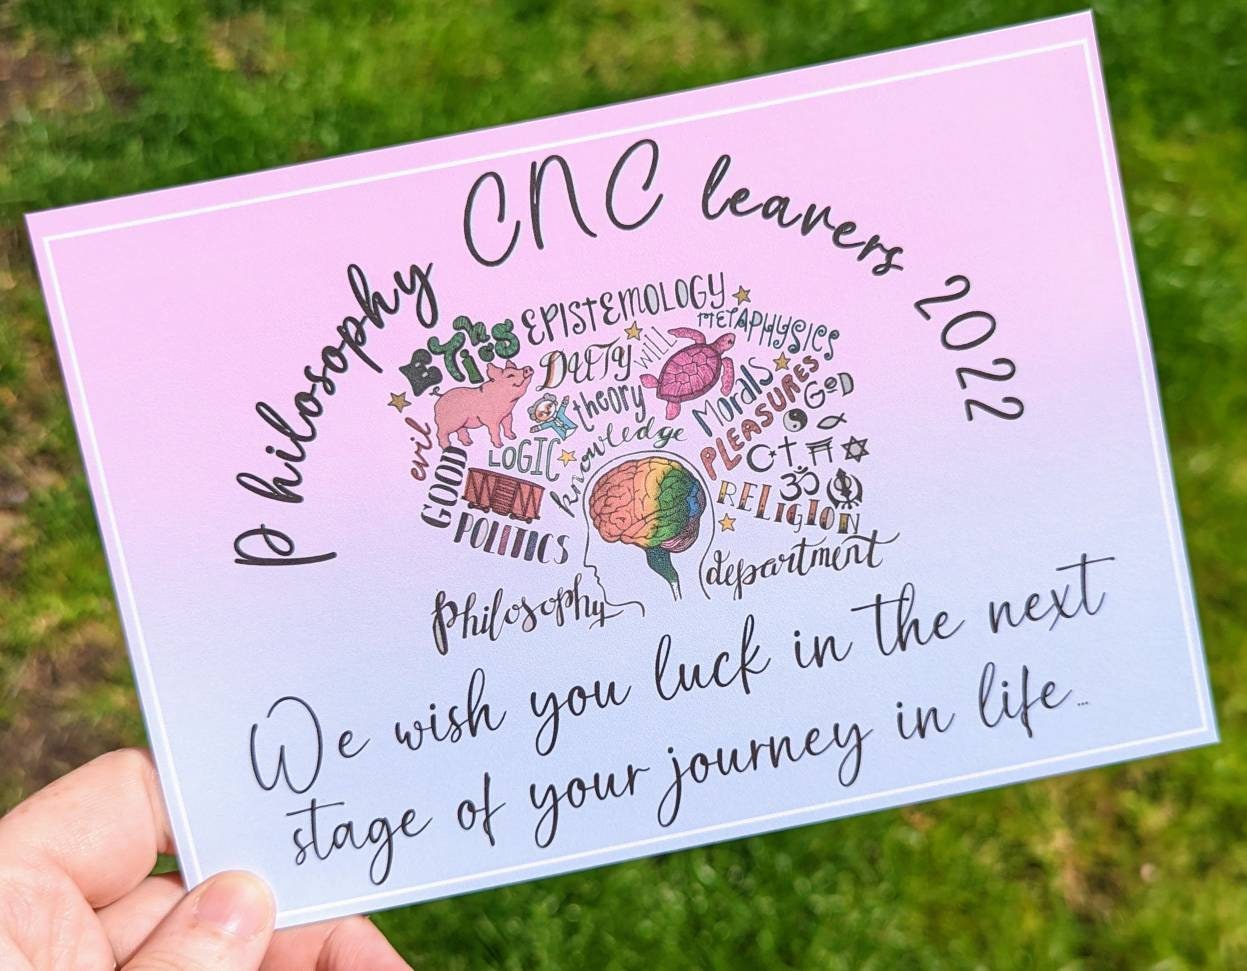 Philosophy CNC leavers 2022
EPISTEMOLOGY
METAPHYSICS
ETHICS
DUTY
WILL
theory
Morals
PLEASURES
GOD
evil
GOOD
LOGIC
knowledge
POLITICS
RELIGION
philosophy
department
We wish you luck in the next
stage of your journey in life...